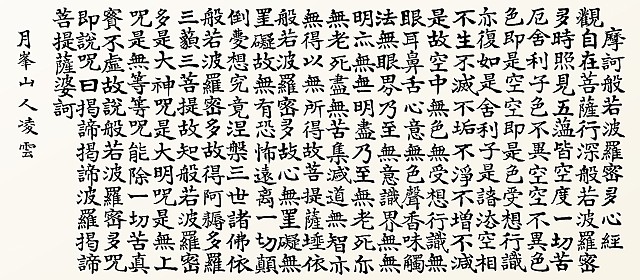 摩訶般若波羅密多心經
觀自在菩薩行深般若波羅密
多時照見五蘊皆空度一切苦
厄舍利子色不異空空不異色
色即是空空即是色受想行識
亦復如是舍利子是諸法空相
不生不滅不垢不淨不增不減
是故空中無色無受想行識無
眼耳鼻舌心意無色聲香味觸
法無眼界乃至無意識界無無
明亦無無明盡乃至無老死亦
無老死盡無苦集滅道無智亦
無得以無所得故菩提薩埵依
般若波羅密多故心無罣礙無
罣礙故無有恐怖遠離一切顛
倒夢想究竟涅槃三世諸佛依
般若波羅密多故得阿耨多羅
三藐三菩提故知般若波羅密
多是大神呪是大明呪是無上
呪是無等等呪能除一切苦真
實不虛故說般若波羅密多呪
即說呪曰揭諦揭諦波羅揭諦
菩提薩婆訶
月峯山人凌雲